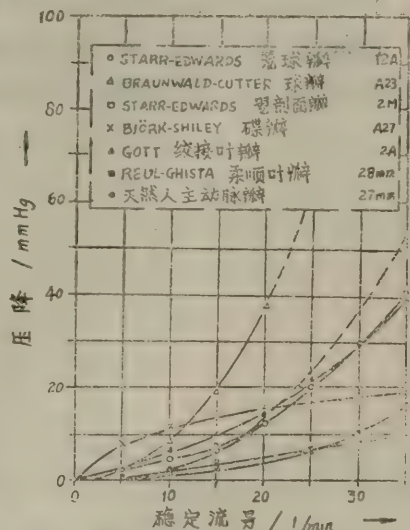 100
80
○ STARR-EDWARDS 笼球瓣 12A
△ BRAUNWALD-CUTTER 球瓣 A23
□ STARR-EDWARDS 型剖面瓣 2M
× BJÖRK-SHILEY 碟瓣 A27
▲ GOTT 绞接叶瓣 2A
■ REUL-GHISTA 柔顺叶瓣 28mm
天然人主动脉瓣 27mm
60
40
20
0
压降 / mmHg
0 10 20 30
稳定流号 / l/min